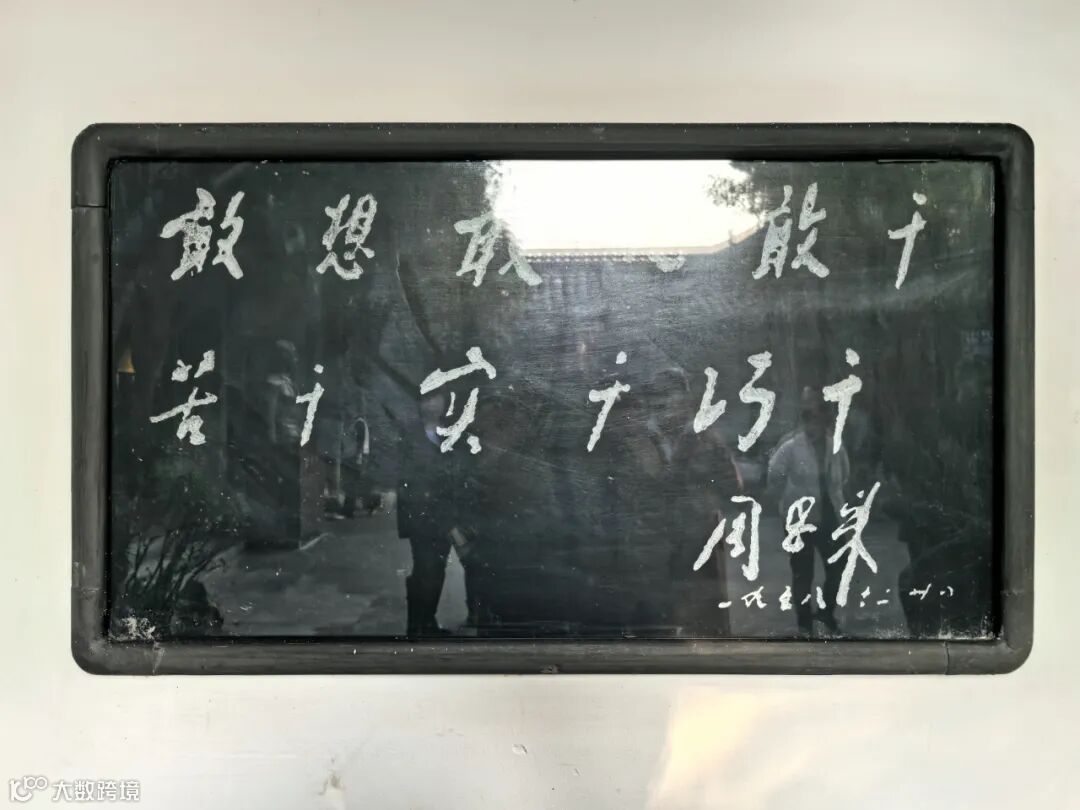 敢想敢 敢干
苦干实干巧干
周恩来
一九五八 十一 廿八
大数跨境